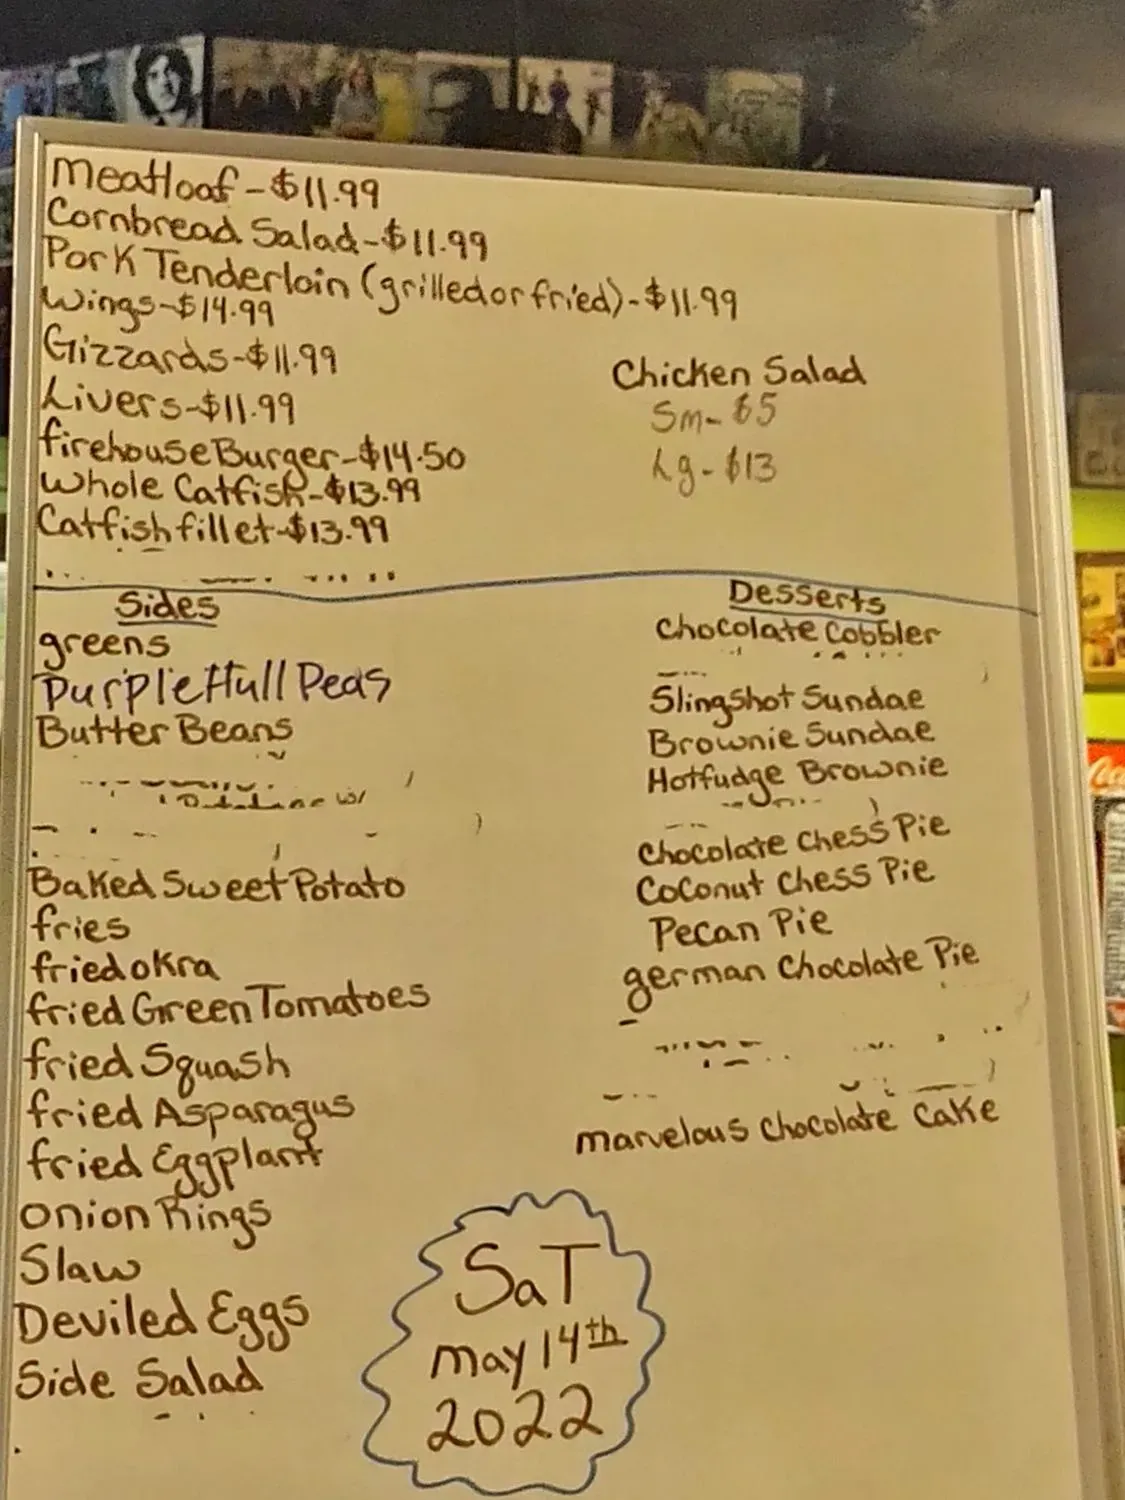 Meatloaf-$11.99
Cornbread Salad-$11.99
Pork Tenderloin (grilled or fried)-$11.99
Wings-$14.99
Gizzards-$11.99
Livers-$11.99
firehouse Burger-$14.50
Whole Catfish-$13.99
Catfish fillet-$13.99
Chicken Salad
Sm- $5
Lg- $13
Sides
greens
Purple Hull Peas
Butter Beans
w/
Baked Sweet Potato
fries
fried okra
fried Green Tomatoes
fried Squash
fried Asparagus
fried Eggplant
onion Rings
Slaw
Deviled Eggs
Side Salad
Desserts
Chocolate Cobbler
Slingshot Sundae
Brownie Sundae
Hotfudge Brownie
Chocolate Chess Pie
Coconut Chess Pie
Pecan Pie
german Chocolate Pie
marvelous Chocolate Cake
SaT
may 14th
2022